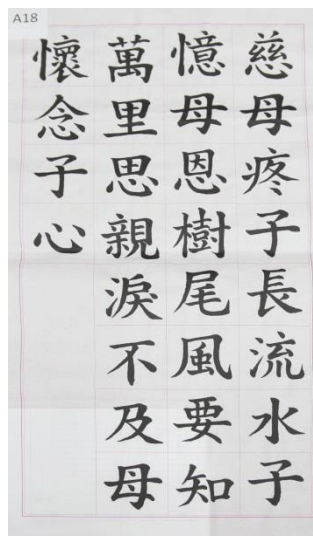 A18
慈母疼子長流水子
憶母恩樹尾風要知
萬里思親淚不及母
懷念子心